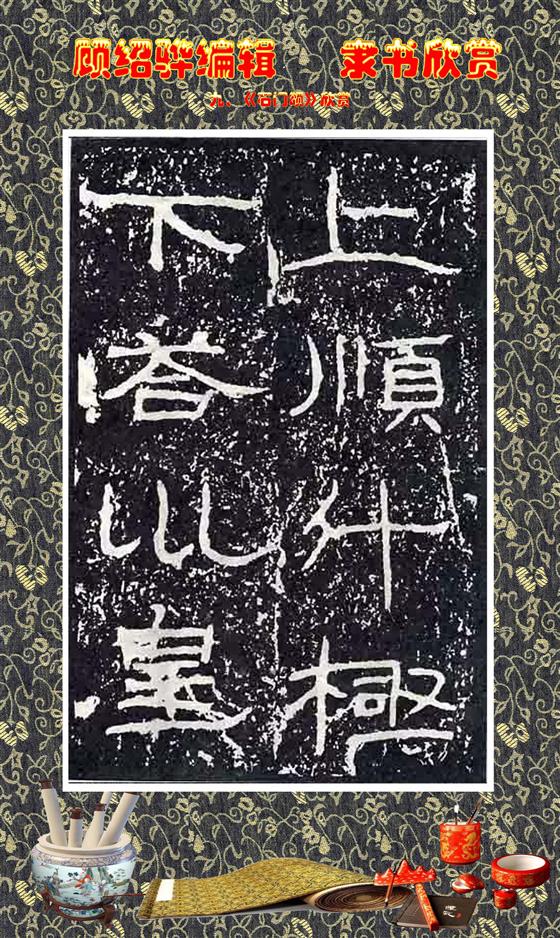 顾绍骅编辑 隶书欣赏
九、《石门颂》欣赏
上順斗極
下荅巛皇